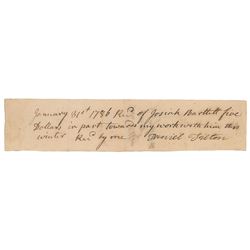 January 31st 1786 Recd of Josiah Bartlett five
Dollars in part towards my work with him this
winter Recd by me Daniel